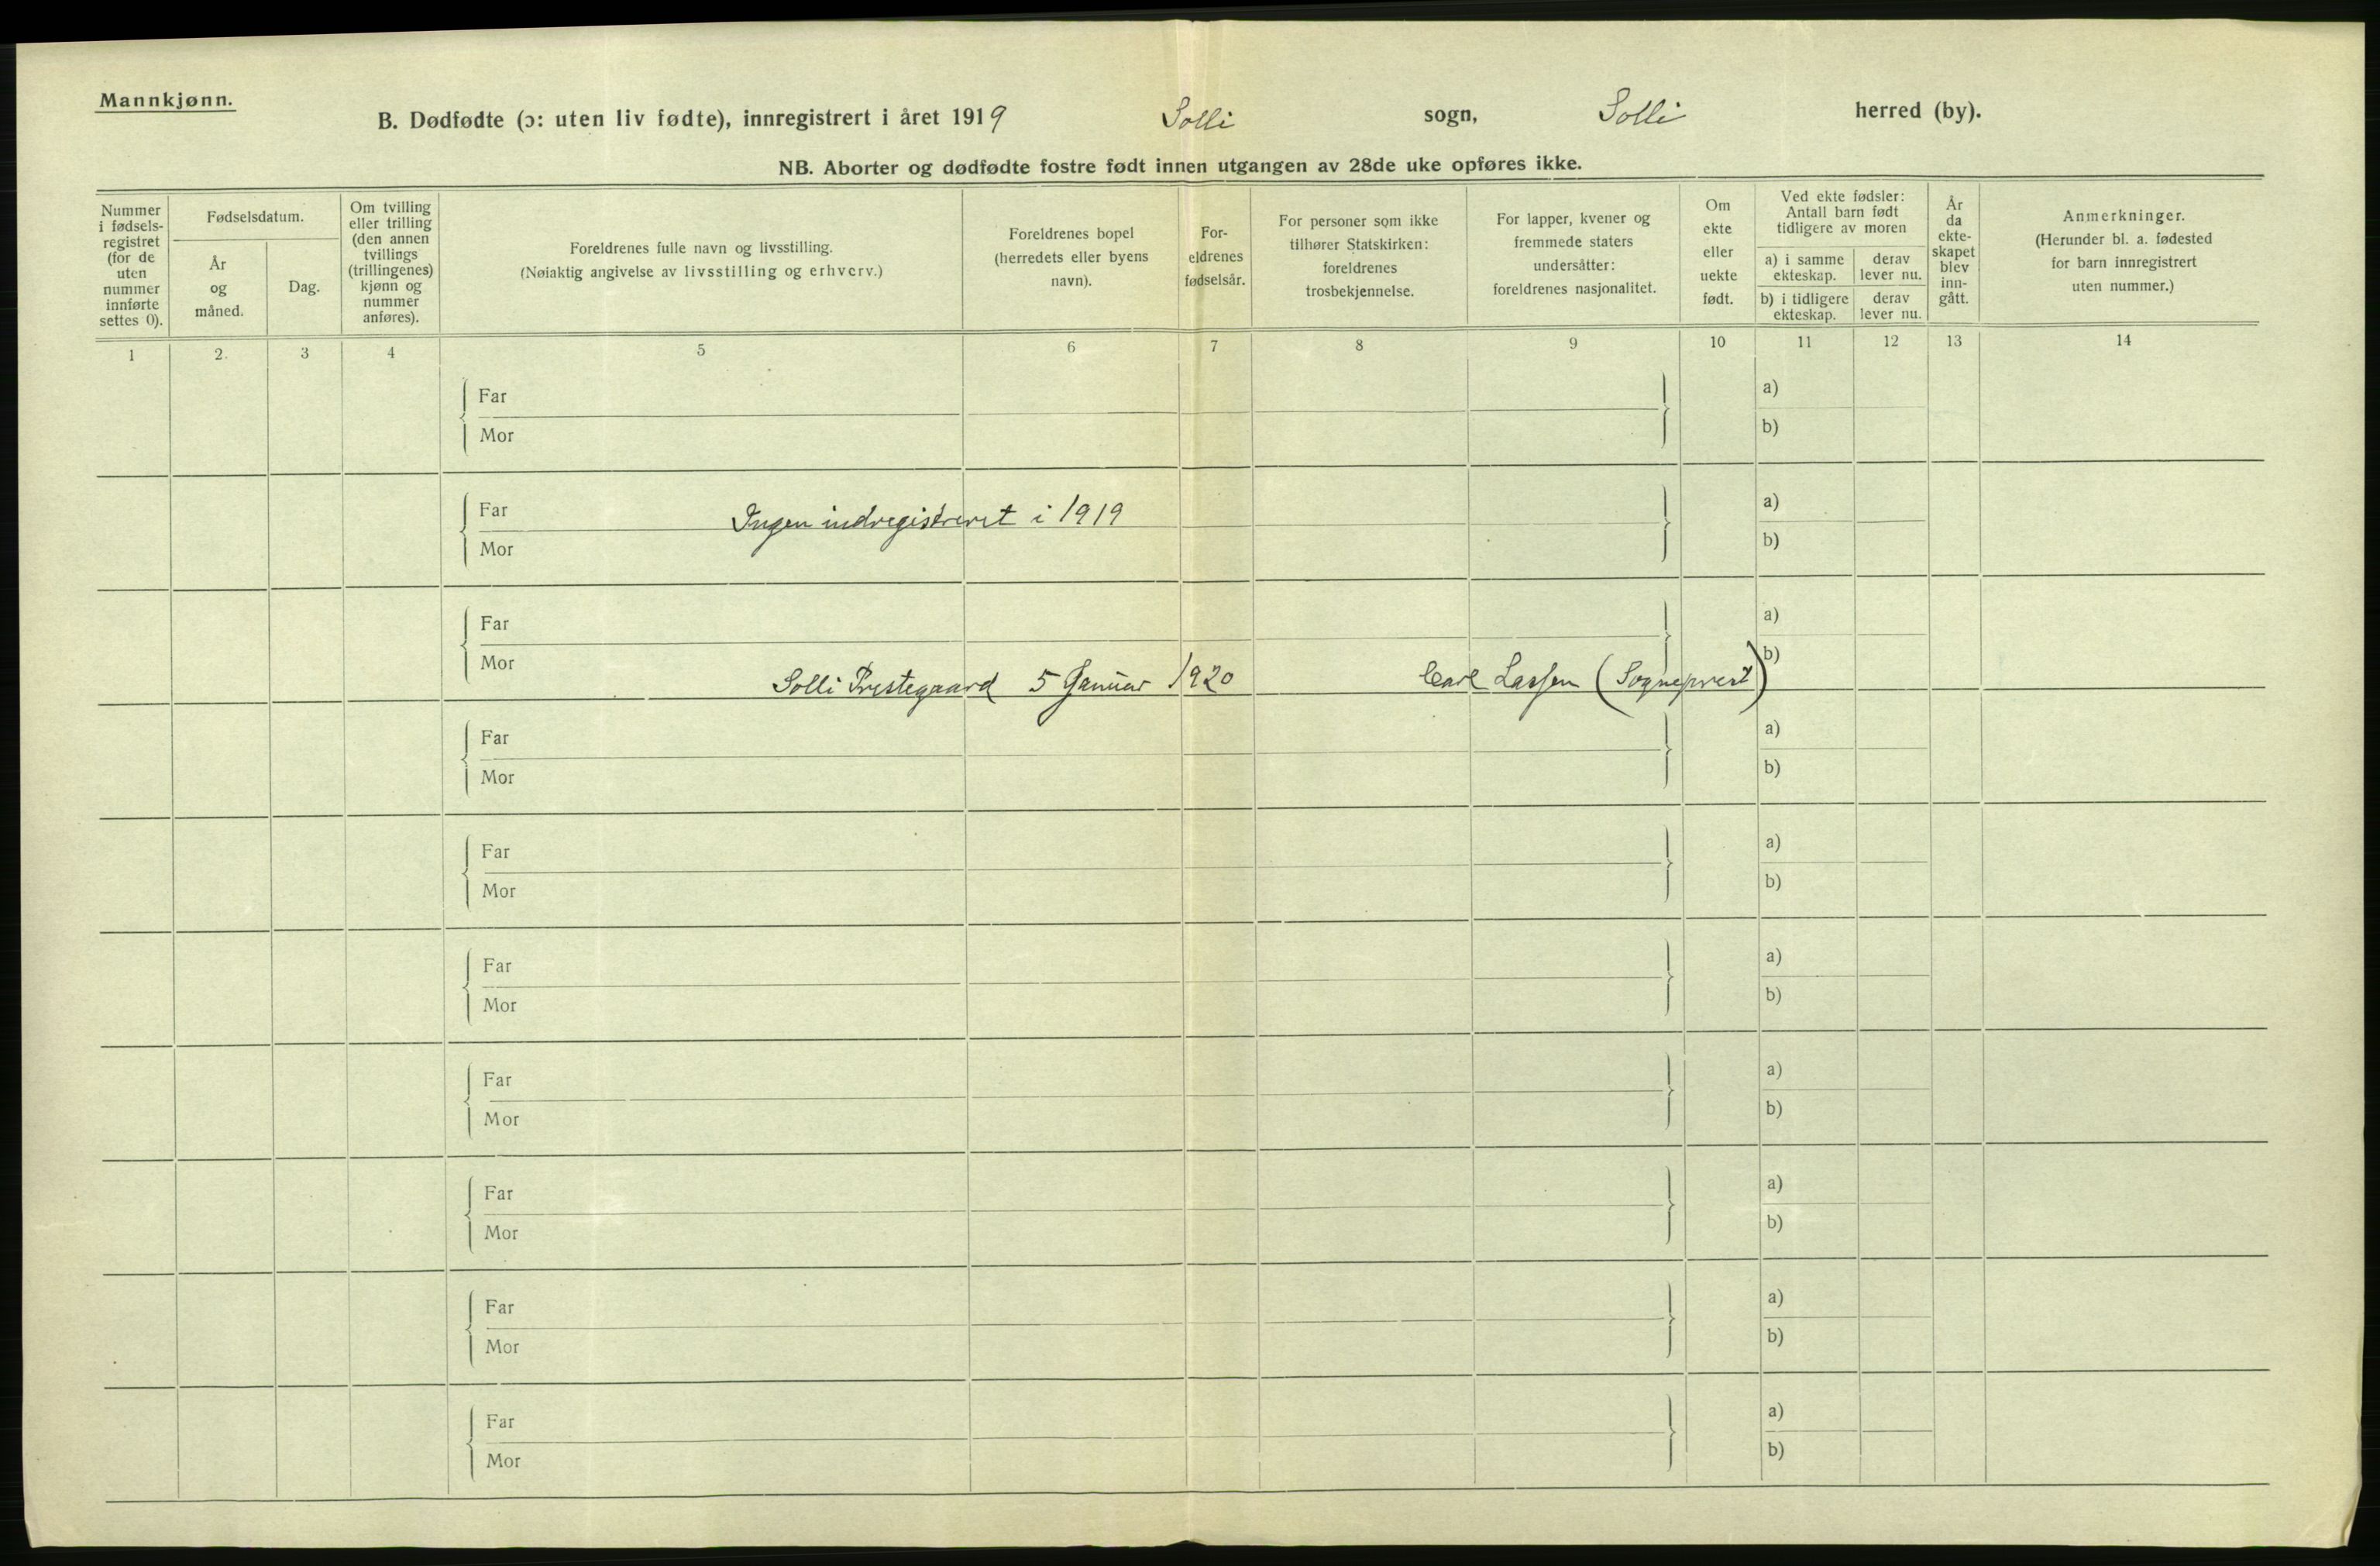 Mannkjønn.
B. Dødfødte (ɔ: uten liv fødte), innregistrert i året 1919 Solli sogn, Solli herred (by).
NB. Aborter og dødfødte fostre født innen utgangen av 28de uke opføres ikke.
Nummer
i fødsels-
registret
(for de
uten
nummer
innførte
settes 0).
Fødselsdatum.
År
og
måned.
Dag.
Om tvilling
eller trilling
(den annen
tvillings
(trillingenes)
kjønn og
nummer
anføres).
Foreldrenes fulle navn og livsstilling.
(Nøiaktig angivelse av livsstilling og erhverv.)
Foreldrenes bopel
(herredets eller byens
navn).
For-
eldrenes
fødselsår.
For personer som ikke
tilhører Statskirken:
foreldrenes
trosbekjennelse.
For lapper, kvener og
fremmede staters
undersåtter:
foreldrenes nasjonalitet.
Om
ekte
eller
uekte
født.
Ved ekte fødsler:
Antall barn født
tidligere av moren
a) i samme
ekteskap.
derav
lever nu.
b) i tidligere
ekteskap.
derav
lever nu.
År
da
ekte-
skapet
blev
inn-
gått.
Anmerkninger.
(Herunder bl. a. fødested
for barn innregistrert
uten nummer.)
1 2. 3 4 5 6 7 8 9 10 11 12 13 14
Far a)
Mor b)
Far Ingen indregistreret i 1919 a)
Mor b)
Far a)
Mor b)
Solli Prestegaard 5 Januar 1920 Carl Lassen (Sogneprest)
Far a)
Mor b)
Far a)
Mor b)
Far a)
Mor b)
Far a)
Mor b)
Far a)
Mor b)
Far a)
Mor b)
Far a)
Mor b)